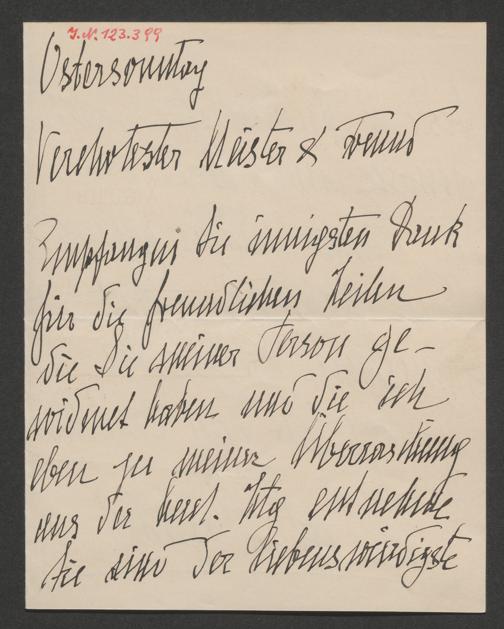 J. N. 123.399
Ostersonntag
Verehrtester Meister & Freund
Empfangen Sie innigsten Dank
für die freundlichen Zeilen
die Sie meiner Person ge-
widmet haben und die ich
eben zu meiner Überraschung
aus der heut. Ztg entnehme
Sie sind der Liebenswürdigste